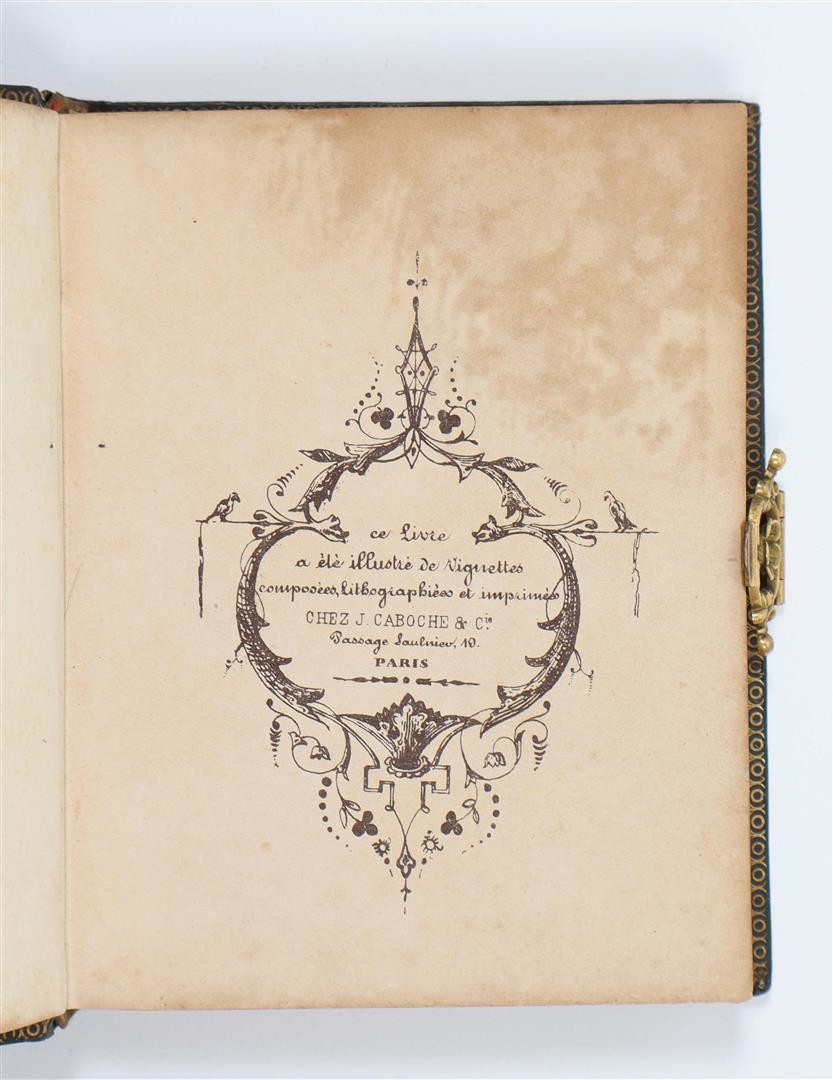 ce Livre
a été illustré de Vignettes
composées, Lithographiées et imprimées
CHEZ J. CABOCHE & Cie
Passage Saulnier, 19.
PARIS